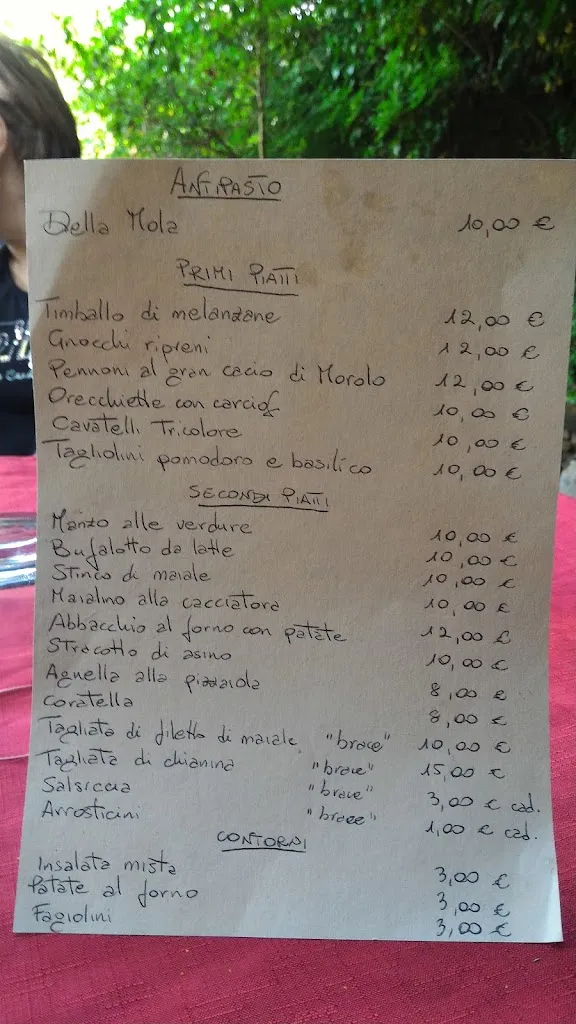 ANTIPASTO
Della Mola 10,00 €
PRIMI PIATTI
Timballo di melanzane 12,00 €
Gnocchi ripieni 12,00 €
Pennoni al gran cacio di Morolo 12,00 €
Orecchiette con carciofi 10,00 €
Cavatelli Tricolore 10,00 €
Tagliolini pomodoro e basilico 10,00 €
SECONDI PIATTI
Manzo alle verdure 10,00 €
Bufalotto da latte 10,00 €
Stinco di maiale 10,00 €
Maialino alla cacciatora 10,00 €
Abbacchio al forno con patate 12,00 €
Stracotto di asino 10,00 €
Agnella alla pizzaiola 8,00 €
Coratella 8,00 €
Tagliata di filetto di maiale "brace" 10,00 €
Tagliata di chianina "brace" 15,00 €
Salsiccia "brace" 3,00 € cad.
Arrosticini "brace" 1,00 € cad.
CONTORNI
Insalata mista 3,00 €
Patate al forno 3,00 €
Fagiolini 3,00 €